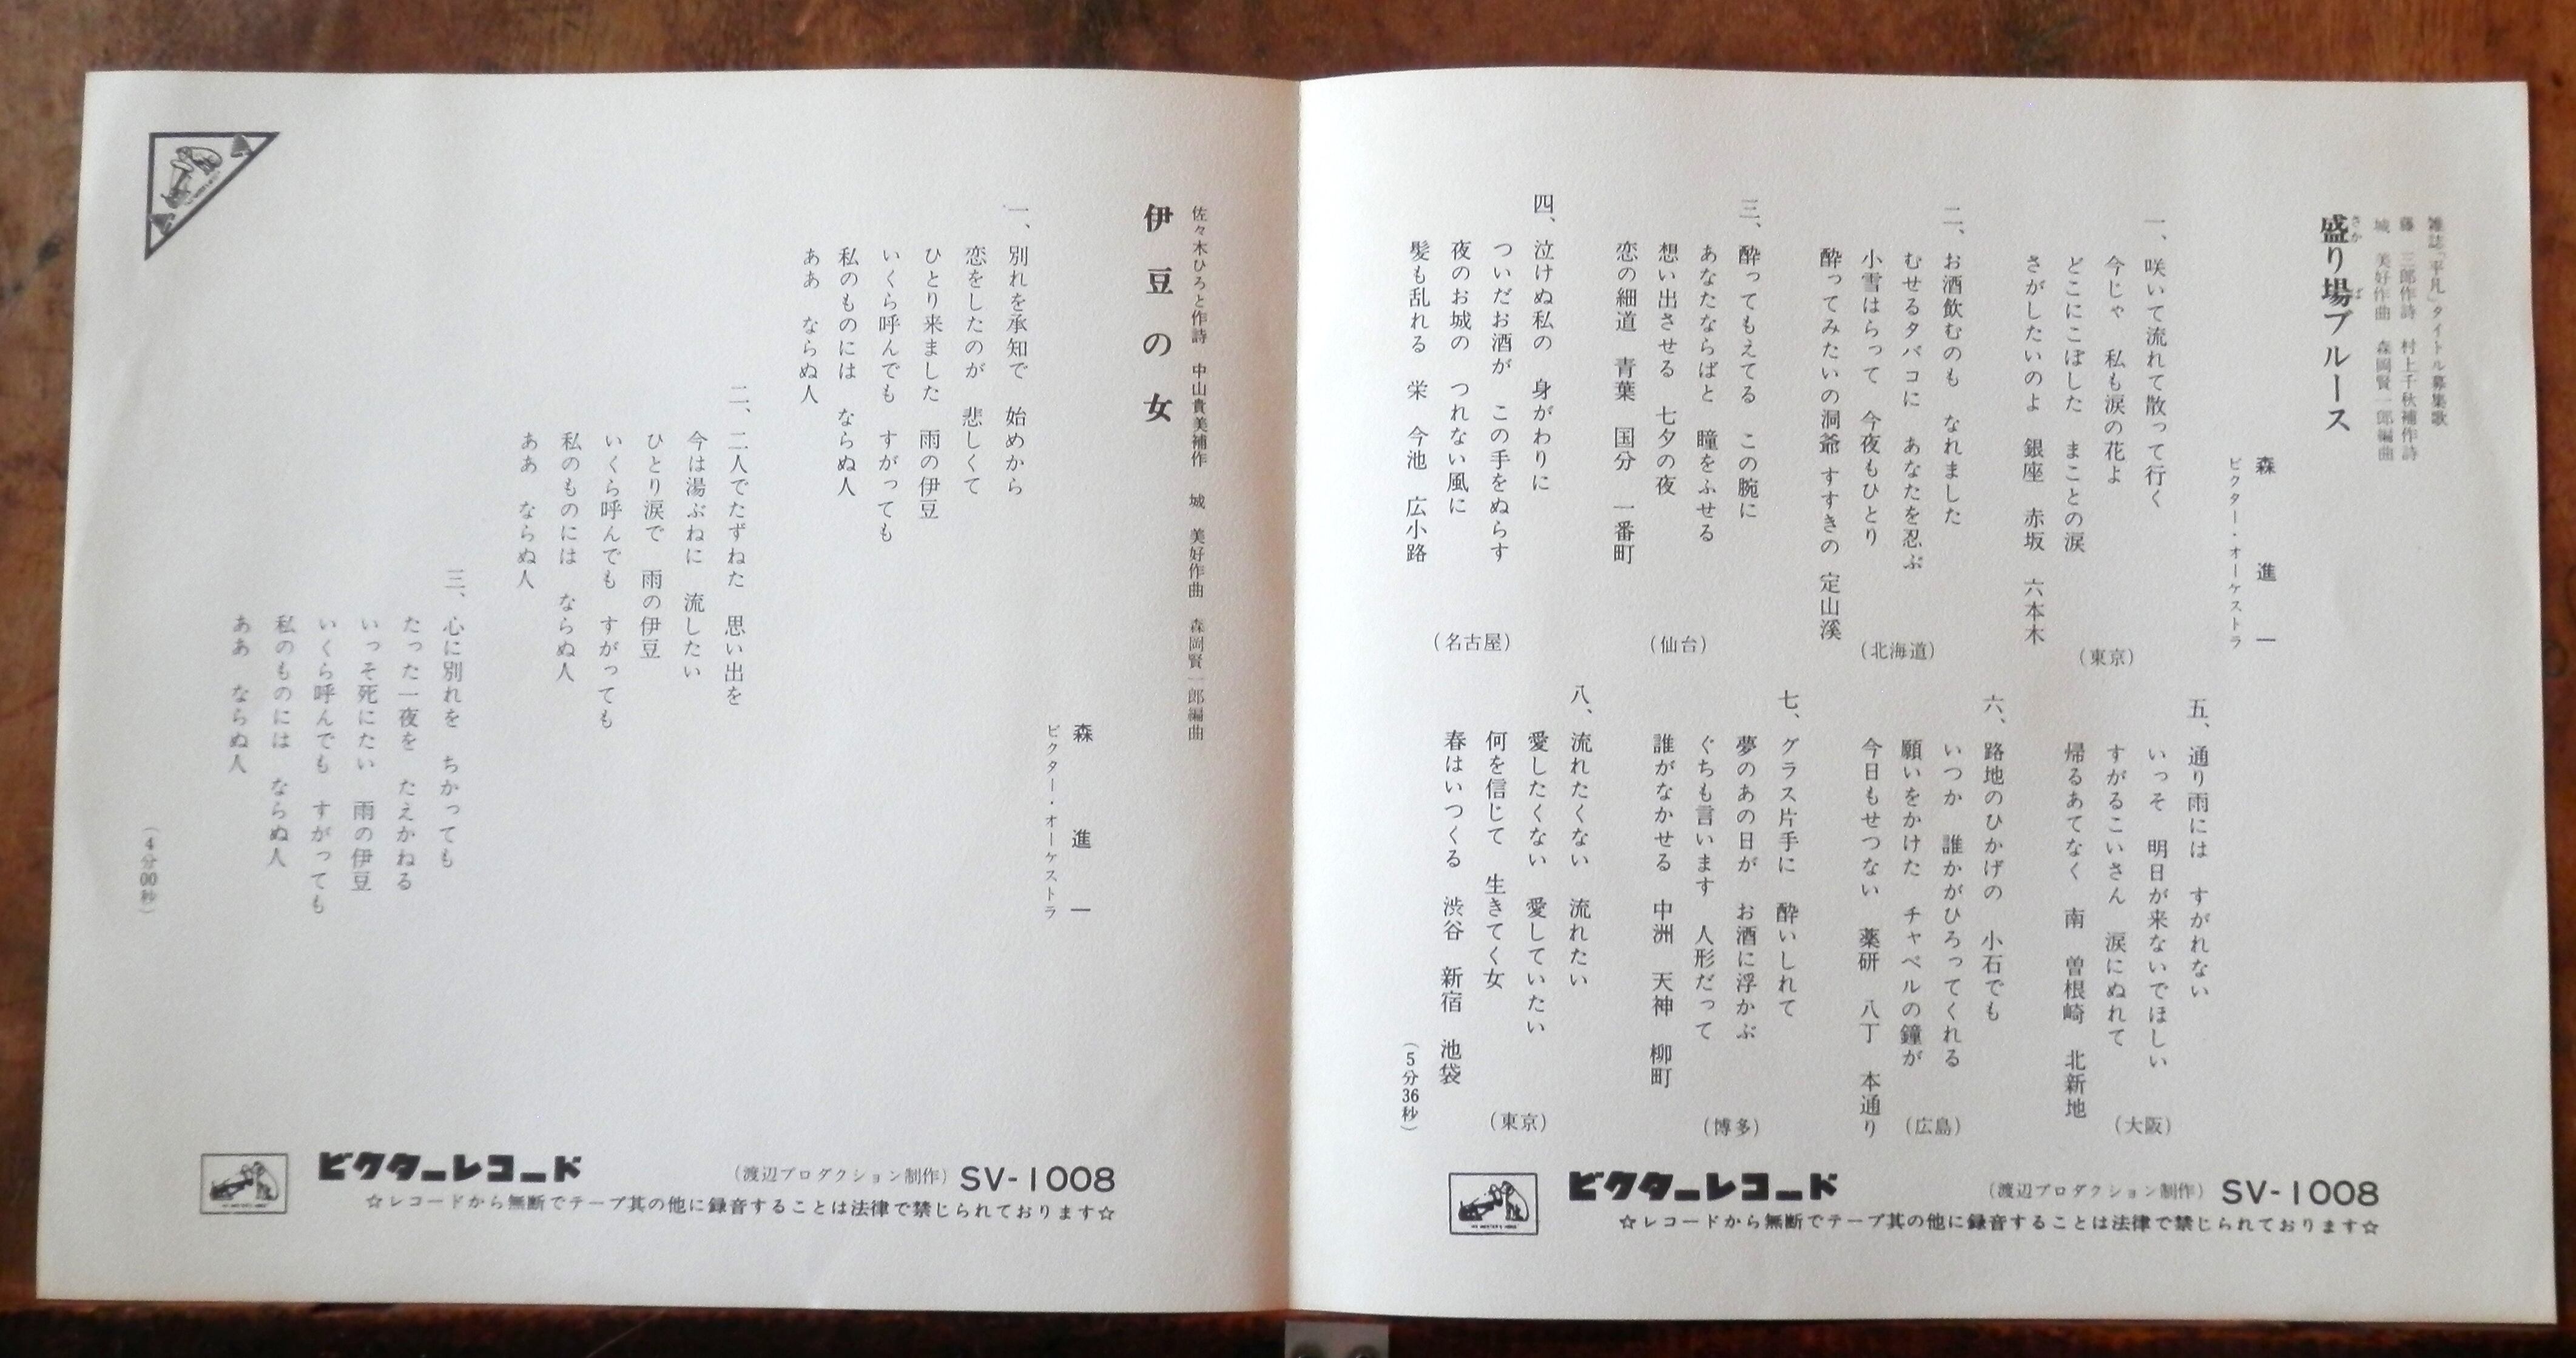 雑誌「平凡」タイトル募集歌
藤 三郎作詩 村上千秋補作詩
城 美好作曲 森岡賢一郎編曲
盛り場ブルース
さか ば
森 進 一
ビクター・オーケストラ
一、咲いて流れて散って行く
今じゃ 私も涙の花よ
どこにこぼした まことの涙
さがしたいのよ 銀座 赤坂 六本木
(東京)
二、お酒飲むのも なれました
むせるタバコに あなたを忍ぶ
小雪はらって 今夜もひとり
酔ってみたいの洞爺 すすきの 定山溪
(北海道)
三、酔ってもえてる この腕に
あなたならばと 瞳をふせる
想い出させる 七夕の夜
恋の細道 青葉 国分 一番町
(仙台)
四、泣けぬ私の 身がわりに
ついだお酒が この手をぬらす
夜のお城の つれない風に
髪も乱れる 栄 今池 広小路
(名古屋)
五、通り雨には すがれない
いっそ 明日が来ないでほしい
すがるこいさん 涙にぬれて
帰るあてなく 南 曽根崎 北新地
(大阪)
六、路地のひかげの 小石でも
いつか 誰かがひろってくれる
願いをかけた チャペルの鐘が
今日もせつない 薬研 八丁 本通り
(広島)
七、グラス片手に 酔いしれて
夢のあの日が お酒に浮かぶ
ぐちも言います 人形だって
誰がなかせる 中洲 天神 柳町
(博多)
八、流れたくない 流れたい
愛したくない 愛していたい
何を信じて 生きてく女
春はいつくる 渋谷 新宿 池袋
(東京)
(5分36秒)
ビクターレコード
(渡辺プロダクション制作) SV-1008
☆レコードから無断でテープ其の他に録音することは法律で禁じられております☆
佐々木ひろと作詩 中山貴美補作 城 美好作曲 森岡賢一郎編曲
伊豆の女
森 進 一
ビクター・オーケストラ
一、別れを承知で 始めから
恋をしたのが 悲しくて
ひとり来ました 雨の伊豆
いくら呼んでも すがっても
私のものには ならぬ人
ああ ならぬ人
二、二人でたずねた 思い出を
今は湯ぶねに 流したい
ひとり涙で 雨の伊豆
いくら呼んでも すがっても
私のものには ならぬ人
ああ ならぬ人
三、心に別れを ちかっても
たった一夜を たえかねる
いっそ死にたい 雨の伊豆
いくら呼んでも すがっても
私のものには ならぬ人
ああ ならぬ人
(4分00秒)
ビクターレコード
(渡辺プロダクション制作) SV-1008
☆レコードから無断でテープ其の他に録音することは法律で禁じられております☆